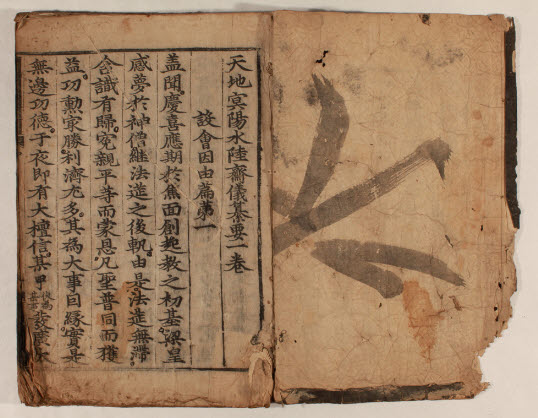 天地冥陽水陸齋儀纂要一卷
設會因由篇第一
盖聞慶喜應期於焦面創起教之初基梁皇
感夢於神僧継法造之後軌由是法筵無滯
含識有歸寃親平等而蒙恩凡聖普同而獲
益功勲最勝利濟尤多其爲大事因縁實是
無邊功德于夜即有大檀信某甲